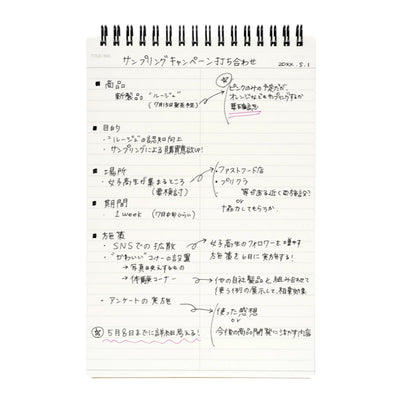 サンプリングキャンペーン打ち合わせ 20XX.5.1
■ 商品
新製品 "ルージュ"
(7月15日発売予定)
ピンクのみの予定だが、
オレンジなども
■ 目的
・"ルージュ"の認知向上
・サンプリングによる購買意欲UP!
■ 場所
・女子高生が集まるところ
(要検討)
・ファストフード店
・プリクラ
or
協力してもらうか
■ 期間
・1 week (7月中旬くらい)
■ 施策
・SNSでの拡散
女子高生のフォロワーを増やす
施策を6月に実施する!
・"かわいい"コーナーの設置
→写真
→体験コーナー
他の自社製品と組み合わせて
使う例の展示して、相乗効果
・アンケートの実施
使った感想
or
今後の商品開発に活かす内容
5月8日までに詳細考える!